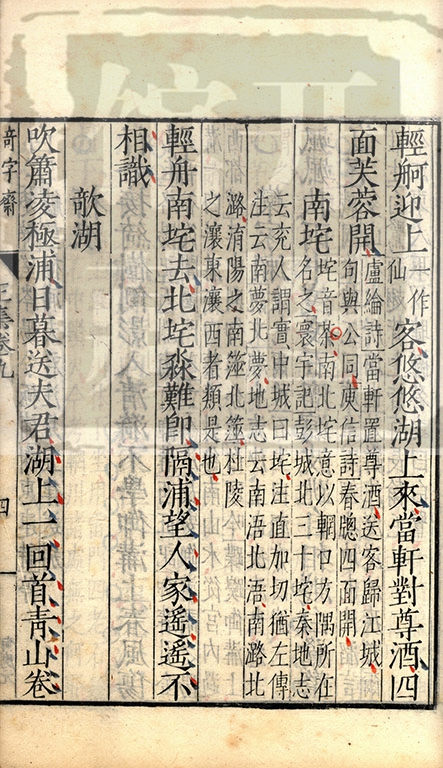 輕舸迎上一作仙客悠悠湖上來當軒對尊酒四
面芙蓉開
盧綸詩當軒置尊酒送客歸江城
句與公同庾信詩春牕四面開
南垞
垞音茶南北垞意以輞口方隅所在
名之寰宇記彭城北三十垞秦地志
云兗人謂實中城曰垞注直加切猶左傳
注云南夢北夢地志云南浯北浯南潞北
潞淯陽之南筮北筮杜陵
之瀼東瀼西者類是也
輕舟南垞去北垞淼難即隔浦望人家遙遙不
相識
欹湖
吹簫凌極浦日暮送夫君湖上一回首青山卷
奇字齋
卷九
四